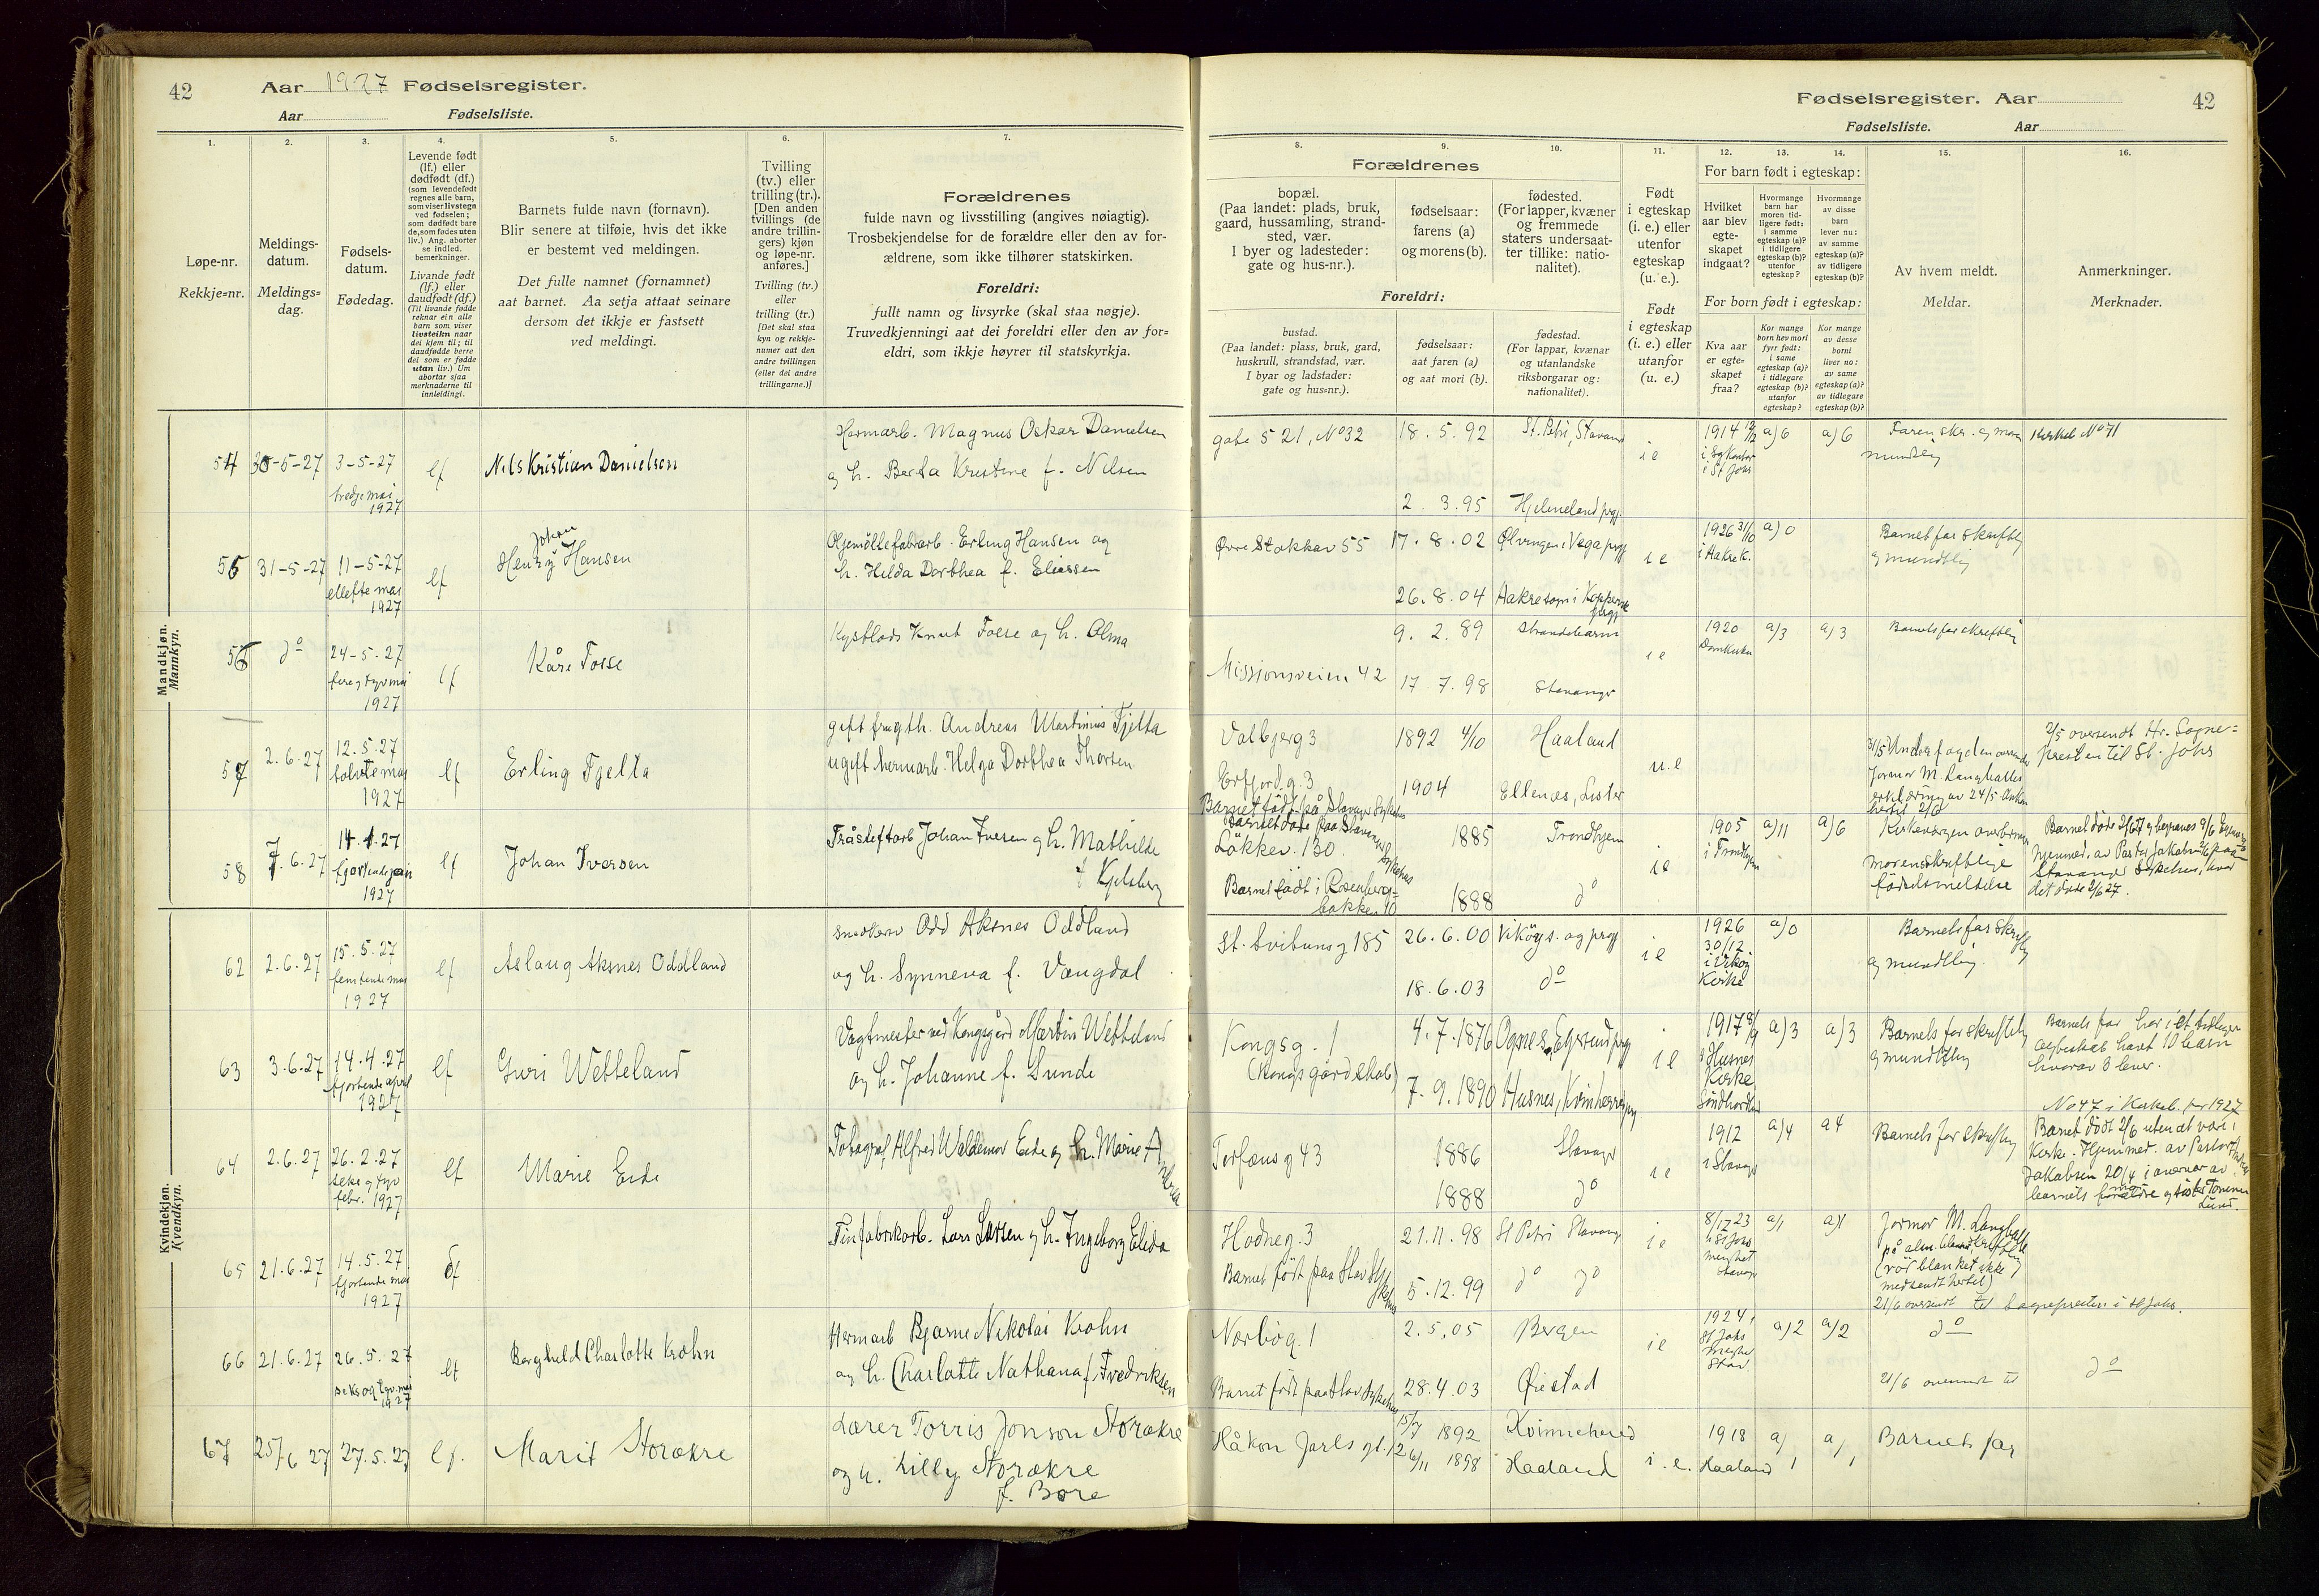 42
Aar 1927 Fødselsregister.
Aar Fødselsliste.
1.
2.
3.
4.
5.
6.
7.
Løpe-nr.
Rekkje=nr.
Meldings-
datum.
Meldings=
dag.
Fødsels-
datum.
Fødedag.
Levende født
(lf.) eller
dødfødt (df.)
(som levendefødt
regnes alle barn,
som viser livstegn
ved fødselen;
som dødfødt bare
de, som fødes uten
liv.) Ang. aborter
se indled.
bemerkninger.
Livande født
(lf.) eller
daudfødt (df.)
(Til livande fødde
reknar ein alle
barn som viser
livsteikn naar
dei kjem til; til
daudfødde berre
dei som er fødde
utan liv.) Um
abortar sjaa
merknaderne til
innleidingi.
Barnets fulde navn (fornavn).
Blir senere at tilføie, hvis det ikke
er bestemt ved meldingen.
Det fulle namnet (fornamnet)
aat barnet. Aa setja attaat seinare
dersom det ikkje er fastsett
ved meldingi.
Tvilling
(tv.) eller
trilling (tr.).
[Den anden
tvillings (de
andre trillin-
gers) kjøn
og løpe-nr.
anføres.]
Tvilling (tv.)
eller
trilling (tr.)
[Det skal staa
kyn og rekkje-
numer aat den
andre tvillingen
(eller dei andre
trillingarne.)]
Forældrenes
fulde navn og livsstilling (angives nøiagtig).
Trosbekjendelse for de forældre eller den av for-
ældrene, som ikke tilhører statskirken.
Foreldri:
fullt namn og livsyrke (skal staa nøgje).
Truvedkjenningi aat dei foreldri eller den av for=
eldri, som ikkje høyrer til statskyrkja.
Mandkjøn.
Mannkyn.
54 30-5-27 3-5-27 lf Nils Kristian Danielsen
tredje mai
1927
Hermarb. Magnus Oskar Danielsen
og h. Berta Kristine f. Nilsen
55 31-5-27 11-5-27 lf Henry Johan Hansen
ellefte mai
1927
Erling Hansen og
h. Hilda Dorthea f. Eliassen
56 do 24-5-27 lf Kåre Fosse
fire og tyv mai
1927
Knut Fosse og h. Alma
57 2.6.27 12.5.27 lf Erling Fjelta
tolvte mai
1927
gift Andreas Martinius Fjelta
ugift hermarb. Helga Dorthea Thorsen
58 7.6.27 14.1.27 lf Johan Iversen
fjortende jan
1927
Johan Iversen og h. Mathilde
f Kjelsberg
Kvindekjøn.
Kvendkyn.
62 2.6.27 15.5.27 lf Aslaug Aksnes Oddland
femtende mai
1927
Snedker Odd Aksnes Oddland
og h. Synneva f. Vangdal
63 3.6.27 14.4.27 lf Guri Wetteland
fjortende april
1927
Vagtmester ved Kongsgård Martin Wetteland
og h. Johanne f. Sunde
64 2.6.27 26.2.27 lf Marie Eide
seks og tyv
febr. 1927
Fotograf Alfred Waldemar Eide og h. Marie
65 21.6.27 14.5.27 df
fjortende mai
1927
Tinfabrikarb. Lars Larsen og h. Ingeborg Elida
66 21.6.27 26.5.27 lf Berghild Charlotte Krohn
seks og tyv. mai
1927
Hermarb Bjarne Nikolai Krohn
og h. Charlotte Nathana f. Fredriksen
67 25/6 27 27.5.27 lf. Marit Storækre
Lærer Torris Jonson Storækre
og h. Lilly Storækre
f. Bore
Fødselsregister. Aar 42
Fødselsliste. Aar
8.
9.
10.
11.
12.
13.
14.
15.
16.
Forældrenes
bopæl.
(Paa landet: plads, bruk,
gaard, hussamling, strand-
sted, vær.
I byer og ladesteder:
gate og hus-nr.).
fødselsaar:
farens (a)
og morens (b).
fødested.
(For lapper, kvæner
og fremmede
staters undersaat-
ter tillike: natio-
nalitet).
Foreldri:
bustad.
(Paa landet: plass, bruk, gard,
huskrull, strandstad, vær.
I byar og ladstader:
gate og hus=nr.).
fødselsaar:
aat faren (a)
og aat mori (b).
fødestad.
(For lappar, kvænar
og utanlandske
riksborgarar og:
nationalitet).
Født
i egteskap
(i. e.) eller
utenfor
egteskap
(u. e.).
Født
i egteskap
(i. e.) eller
utanfor
(u. e.)
For barn født i egteskap:
Hvilket
aar blev
egte-
skapet
indgaat?
Hvormange
barn har
moren tid-
ligere født:
i samme
egteskap (a)?
i tidligere
egteskap (b)?
utenfor
egteskap?
Hvormange
av disse
barn
lever nu:
av samme
egteskap (a)?
av tidligere
egteskap (b)?
For born født i egteskap:
Kva aar
er egte=
skapet
fraa?
Kor mange
born hev mori
fyrr født:
i same
egteskap (a)?
i tidlegare
egteskap (b)?
utanfor
egteskap?
Kor mange
av desse
borni
liver no:
av same
egteskap (a)?
av tidlegare
egteskap (b)?
Av hvem meldt.
Meldar.
Anmerkninger.
Merknader.
gate 521, No 32 18.5.92 St. Petri, Stavang i e 1914 a) 6 a) 6
2.3.95 Hjelmeland prgj.
Kirkeb No 71
Øvre Stokkav 55 17.8.02 i e 1926 31/10 a) 0 Barnets far skriftlig
og mundtlig
26.8.04 Aakre sogn i Koppervik
prgj
Missionsveien 42 9.2.89 Strandebarm i e 1920 a) 3 a) 3 Barnets far skriftlig
Domkirken
17.7.98 Stavanger
Valbjerg 3 1892 4/10 Haaland u.e
Erfjord g. 3 1904 Ellenæs, Lister
Barnet født på Stavang Sykehus
2/5 oversendt Hr. Sogne=
presten til St. Johs
Løkkev. 130 1885 Trondhjem i e 1905 a) 11 a) 6
i Trondhjem
Barnet født i Rosenberg-
bakken 10 1888 do
morens skriftlige
fødselsmeldelse
det døde 2/6 27.
St. Svituns g 185 26.6.00 Vikøy s. og prgj i e 1926 a) 0 Barnets far skriftlig
og mundtlig
30/12
i Vikøy
Kirke
18.6.03 do
Kongsg. 1 4.7.1876 Ognes, Egersund prgj i e 1917 a) 3 a) 3 Barnets far skriftlig
og mundtlig
(Kongsgård skole) 7.9.1890 Husnes, Kvinherred prgj
Husnes
Kirke
Barnets far har i et tidligere
ægteskab havt 10 barn
hvorav 8 lever.
Terfæus g 43 1886 Stavang i e 1912 a) 4 a 4 Barnets far skriftlig
1888 do
i Stavang
No 47 i Kirkeb. for 1927
Hodneg. 3 21.11.98 St Petri Stavang i e 8/12 23 a) 1 a) 1 Jormor M. Langhalle
Barnet født paa Stav Sykehus 5.12.99 do do
21/6 oversendt til sogneprestèn i St Johs.
Norbøg. 1 2.5.05 Bergen i e 1924 a) 2 a) 2 do
Barnet født paa Stav Sykehus 28.4.03 Øiestad 21/6 oversendt til do
Håkon Jarls gt. 12 15/7 1892 Kvinnehered i. e. 1918 a) 1 a) 1 Barnets far
1898 Haaland Haaland